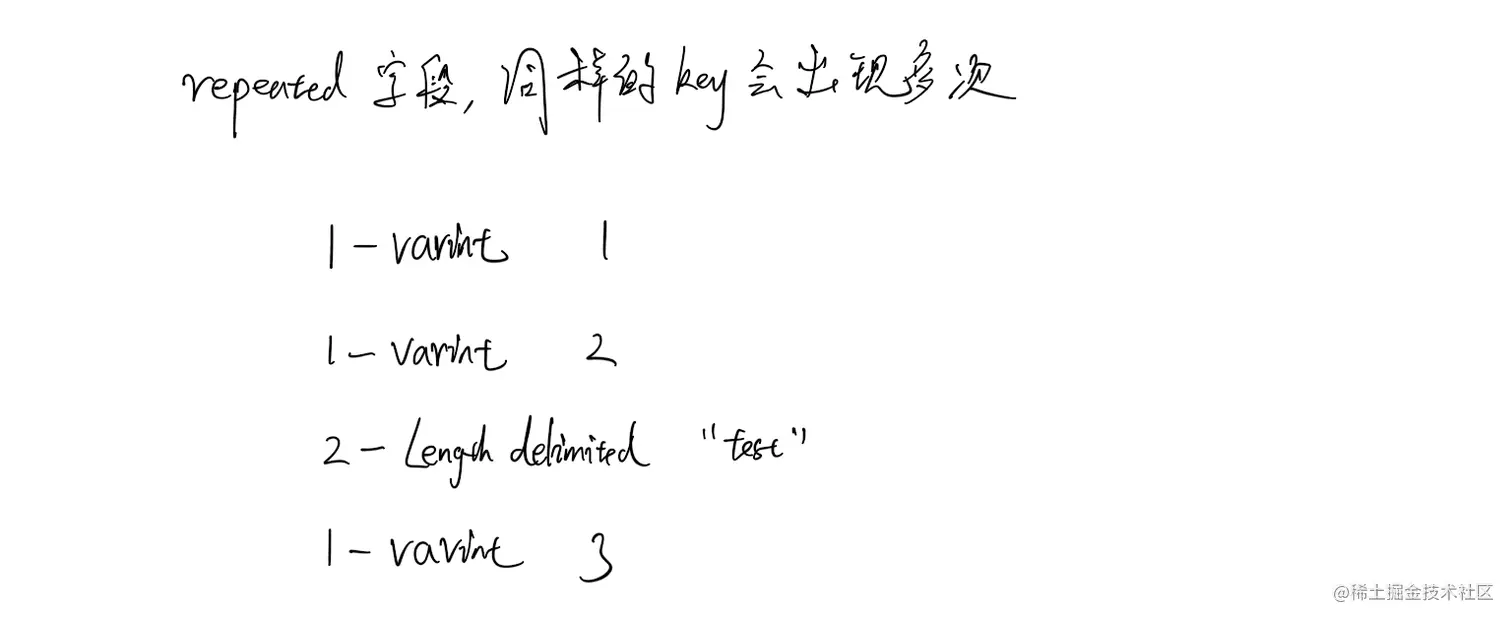 repeated 字段, 同样的 key 会出现多次
1 - varint 1
1 - varint 2
2 - Length delimited "test"
1 - varint 3
@稀土掘金技术社区